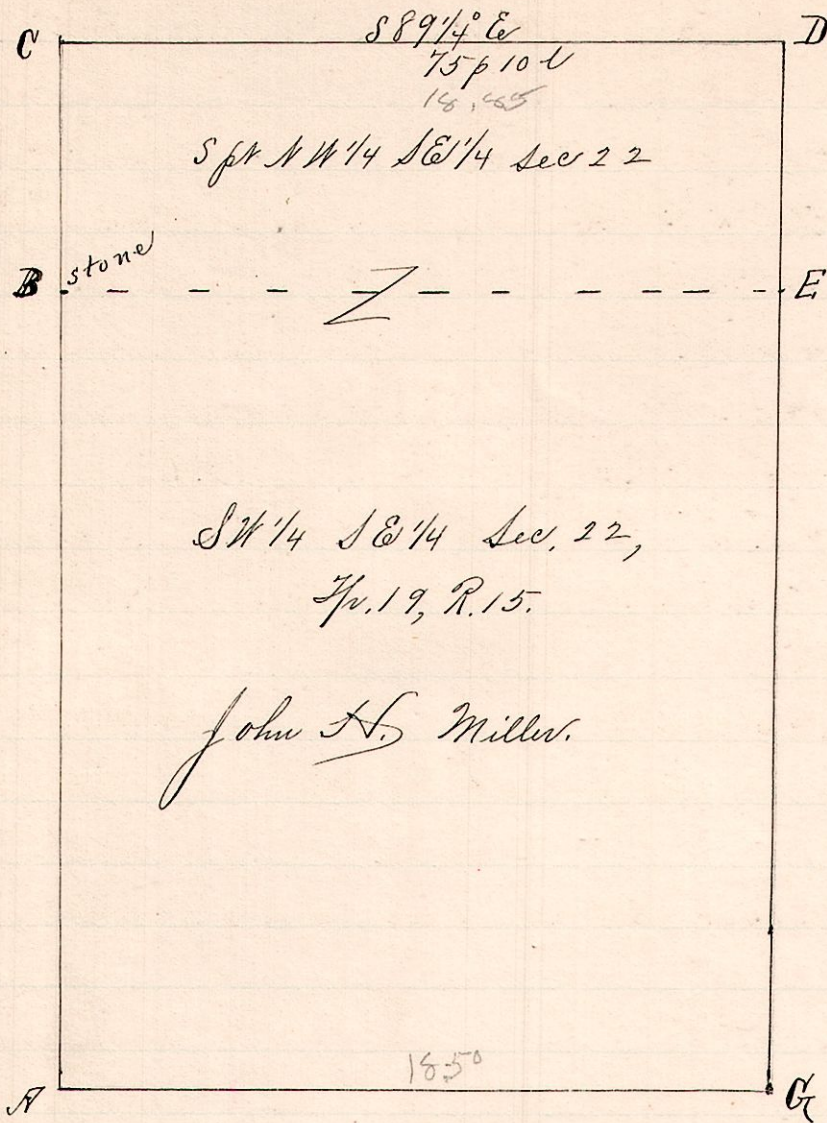 C S 89 1/4° E D
75 p 10 l
18.85
S pt N W 1/4 S E 1/4 Sec 22
B stone E
Z
S W 1/4 S E 1/4 Sec. 22,
Tp. 19, R. 15.
John H. Miller.
18.50
A G